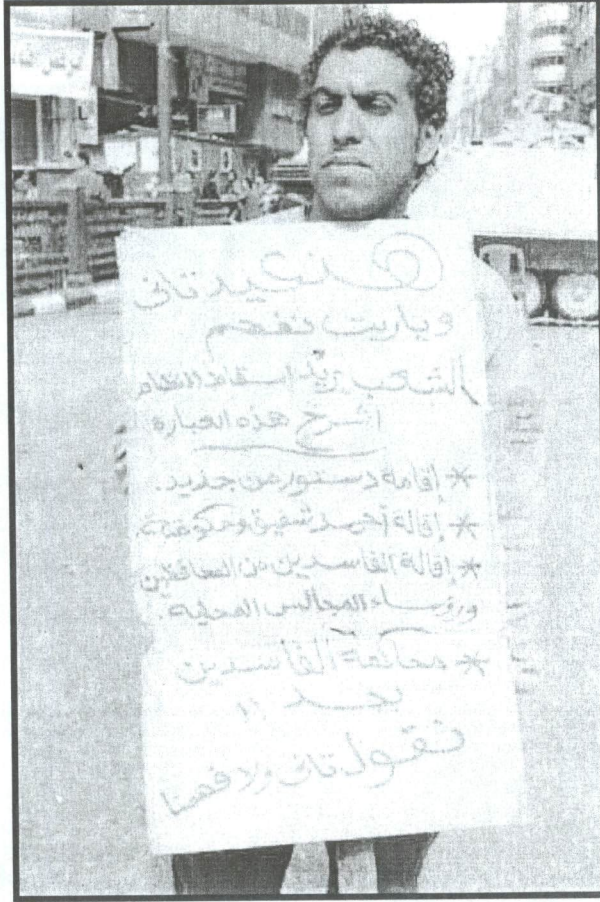 هنعيد تانى
وياريت نفهم
الشعب يريد اسقاط النظام
اشرح هذه العبارة
* إقامة دستور من جديد.
* إقالة أحمد شفيق وحكومته.
* إقالة الفاسدين من المحافظين
ورؤساء المجالس المحلية.
* محاكمة الفاسدين
بجد !!
نقول تانى ولا فهمنا